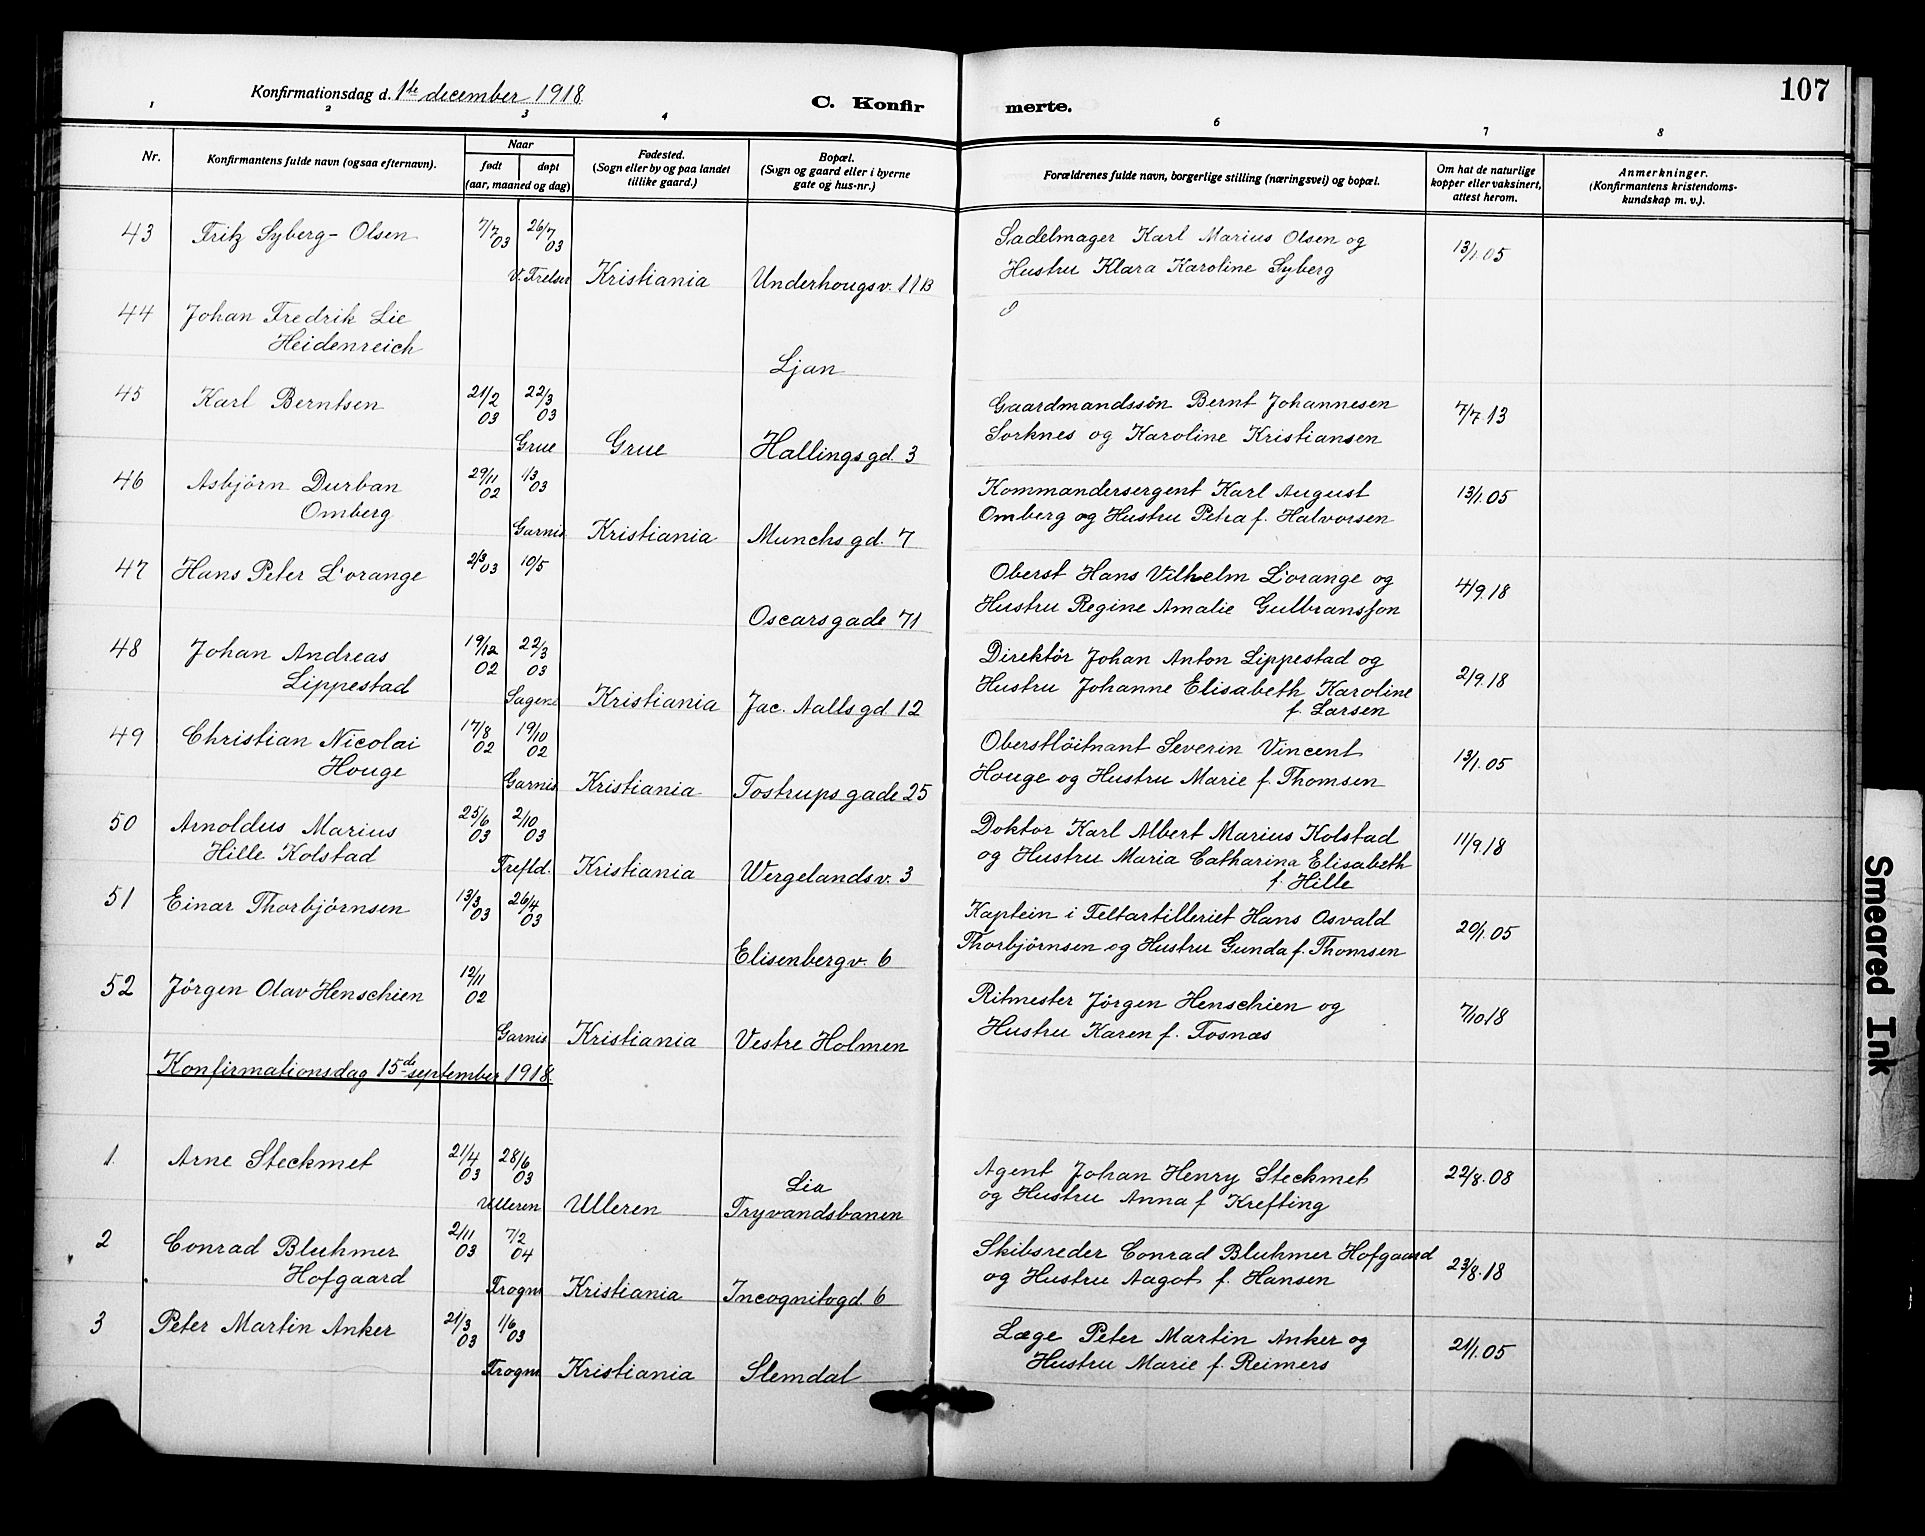 107
Konfirmationsdag d. 1ste december 1918
C. Konfir merte.
1 2 3 4 6 7 8
Nr.
Konfirmantens fulde navn (ogsaa efternavn).
Naar
født døpt
(aar, maaned og dag)
Fødested.
(Sogn eller by og paa landet
tillike gaard.)
Bopæl.
(Sogn og gaard eller i byerne
gate og hus-nr.)
Forældrenes fulde navn, borgerlige stilling (næringsvei) og bopæl.
Om hat de naturlige
kopper eller vaksinert,
attest herom.
Anmerkninger.
(Konfirmantens kristendoms-
kundskap m. v.).
43 Fritz Syberg-Olsen 7/7 03 26/7 03 Sadelmager Karl Marius Olsen og 13/1.05
V. Frelser Kristiania Underhougsv. 11B Hustru Klara Karoline Syberg
44 Johan Fredrik Lie
Heidenreich
Ljan
45 Karl Berntsen 21/2 03 22/3 03 Gaardmandssön Bernt Johannesen 7/7.13
Grue Grue Hallingsgd. 3 Sorknes og Karoline Kristiansen
46 Asbjörn Durban 29/11 02 1/3 03 Kommandersergent Karl August 13/1.05
Omberg Garnis. Kristiania Munchsgd. 7 Omberg og Hustru Petra f. Halvorsen
47 Hans Peter L'orange 2/3 03 10/5 Oberst Hans Vilhelm L'orange og 4/9.18
Oscarsgade 71 Hustru Regine Amalie Gulbransson
48 Johan Andreas 19/12 02 22/3 03 Direktör Johan Anton Lippestad og 2/9.18
Lippestad Sagene Kristiania Jac. Aallsgd. 12 Hustru Johanne Elisabeth Karoline
f. Larsen
49 Christian Nicolai 17/8 02 19/10 02 Oberstlöitnant Severin Vincent 13/1.05
Houge Garnis. Kristiania Tostrupsgade 25 Houge og Hustru Marie f. Thomsen
50 Arnoldus Marius 25/6 03 2/10 03 Doktor Karl Albert Marius Kolstad 11/9.18
Hille Kolstad Trefld. Kristiania Wergelandsv. 3 og Hustru Maria Catharina Elisabeth
f. Hille
51 Einar Thorbjörnsen 13/3 03 26/4 03 Kaptein i Feltartilleriet Hans Osvald 20/1.05
Elisenbergv. 6 Thorbjörnsen og Hustru Gunda f. Thomsen
52 Jörgen Olav Henschien 12/11 02 Ritmester Jörgen Henschien og 7/10.18
Garnis Kristiania Vestre Holmen Hustru Karen f. Fosnæs
Konfirmationsdag 15de september 1918.
1. Arne Steckmet 21/4 03 28/6 03 Lia Agent Johan Henry Steckmet 22/8.08
Ulleren Ulleren Tryvandsbanen og Hustru Anna f Krefting
2 Conrad Bluhmer 2/11 03 7/2 04 Skibsreder Conrad Bluhmer Hofgaard 23/8.18
Hofgaard Frogn. Kristiania Incognitogd. 6 og Hustru Aagot f. Hansen
3 Peter Martin Anker 21/3 03 1/6 03 Læge Peter Martin Anker og 21/1.05
Frogn. Kristiania Slemdal Hustru Marie f. Reimers
Smeared Ink